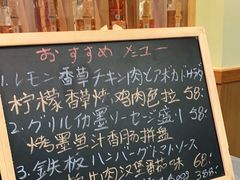 おすすめメニュー
1.レモン香草チキン肉とアボカドサラダ
柠檬香草烤鸡肉色拉 58.-
2.グリルイカ墨ソーセージ盛り
烤墨鱼汁香肠拼盘
3.鉄板ハンバーグトマトソース
牛肉汉堡番茄味 68.-